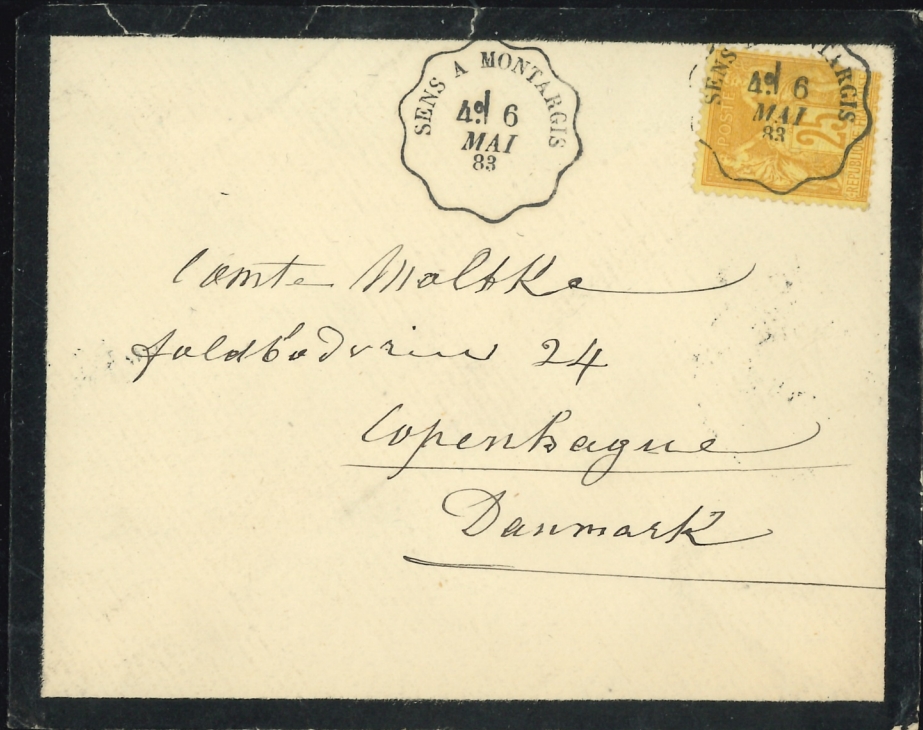 SENS A MONTARGIS
6
MAI
83
SENS A MONTARGIS
6
MAI
83
POSTES
25
REPUBLIQUE
Comte Moltke
24
Copenhague
Danmark